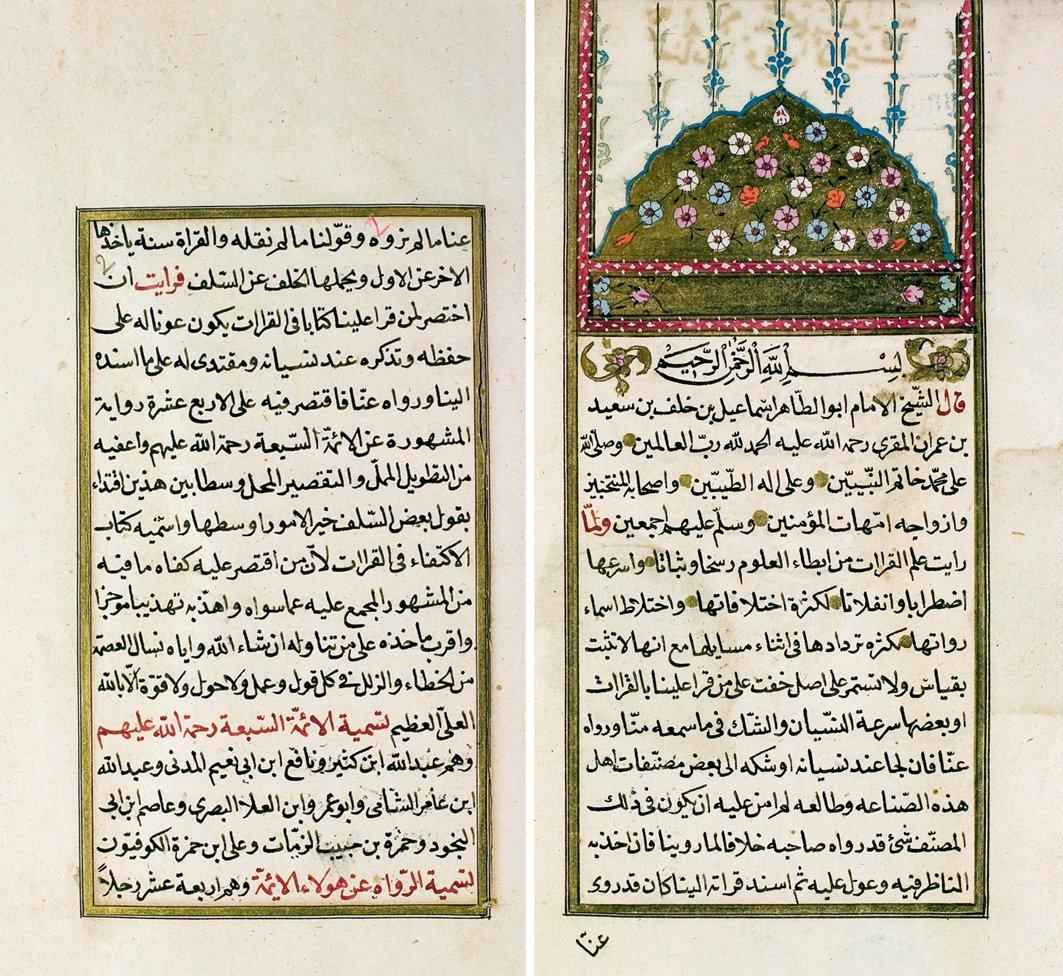 بسم الله الرحمن الرحيم
قال الشيخ الامام ابو الطاهر اسماعيل بن خلف بن سعيد
بن عمران المقري رحمه الله عليه الحمد لله رب العالمين وصلى الله
على محمد خاتم النبيين وعلى اله الطيبين واصحابه المنتجبين
وازواجه امهات المؤمنين وسلم عليهم اجمعين ولما
رايت علم القرات من ابطاء العلوم رسخا وثباتا واسرعها
اضطرابا وانفلاتا لكثرة اختلافاتها واختلاط اسماء
رواتها بكثرة تردادها فى اثناء مسايلها مع انها لا تثبت
بقياس ولا تستمر على اصل خفت على من قرا علينا بالقرات
او بعضها سرعة النسيان والشك فى ما سمعه منا ورواه
عنا فان لجا عند نسيانه او شكه الى بعض مصنفات اهل
هذه الصناعه وطالعه لم امن عليه ان يكون فى ذلك
المصنف شئ قد رواه صاحبه خلافا لما روينا فان اخذ به
الناظر فيه وعول عليه ثم اسند قراته الينا كان قد روى
عنا
عنا ما لم نروه وقولنا ما لم نقله والقراة سنة ياخذها
الاخر عن الاول ويحملها الخلف عن السلف فرايت ان
اختصر لمن قرا علينا كتابا فى القرات يكون عونا له على
حفظه وتذكره عند نسيانه ومقتدى له على ما اسنده
الينا ورواه عنا فاقتصر فيه على الاربع عشرة رواية
المشهورة عن الائمة السبعة رحمة الله عليهم واعفيه
من التطويل الممل والتقصير المخل وسطا بين هذين اقتداء
بقول بعض السلف خير الامور اوسطها واسميه كتاب
الاكتفاء فى القرات لان من اقتصر عليه كفاه ما فيه
من المشهور المجمع عليه عما سواه واهذبه تهذيبا موجزا
واقرب ماخذه على من تناوله ان شاء الله واياه نسال العصمة
من الخطاء والزلل فى كل قول وعمل ولا حول ولا قوة الا بالله
العلى العظيم تسمية الائمة السبعة رحمة الله عليهم
وهم عبدالله ابن كثير ونافع ابن ابى نعيم المدنى وعبدالله
ابن عامر الشامى وابو عمرو ابن العلا البصرى وعاصم ابن ابى
النجود وحمزة بن حبيب الزيات وعلى ابن حمزة الكوفيون
تسمية الرواه عن هولاء الائمة وهم اربعة عشر رجلاً